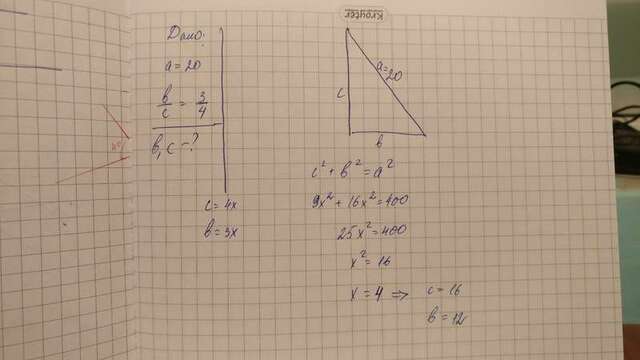 Krouter
Дано:
a = 20
b/c = 3/4
b, c - ?
c = 4x
b = 3x
a = 20
c
b
c² + b² = a²
9x² + 16x² = 400
25x² = 400
x² = 16
x = 4 => c = 16
b = 12